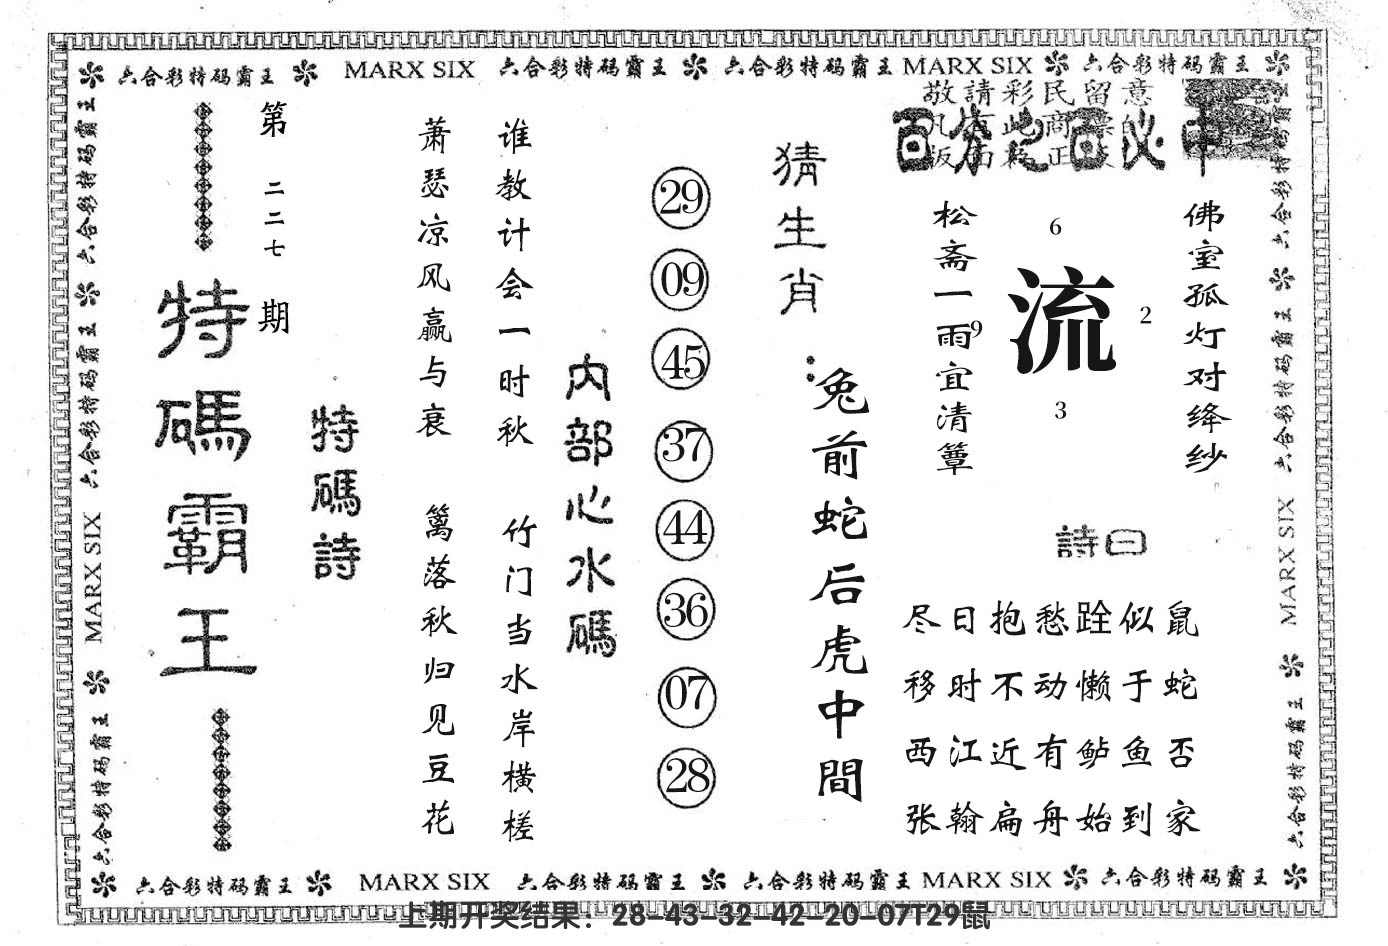 六合彩特码霸王 MARX SIX 六合彩特码霸王 六合彩特码霸王 MARX SIX 六合彩特码霸王
敬請彩民留意
第二二七期
特碼霸王
特碼詩
萧瑟凉风赢与衰
谁教计会一时秋
篱落秋归见豆花
竹门当水岸横槎
内部心水碼
29
09
45
37
44
36
07
28
猜生肖：
兔前蛇后虎中間
松斋一雨宜清簟
6
9
流
2
3
佛室孤灯对绛纱
詩曰
尽日抱愁跧似鼠
移时不动懒于蛇
西江近有鲈鱼否
张翰扁舟始到家
六合彩特码霸王 MARX SIX 六合彩特码霸王
六合彩特码霸王 MARX SIX 六合彩特码霸王
六合彩特码霸王 MARX SIX 六合彩特码霸王 六合彩特码霸王 MARX SIX 六合彩特码霸王
上期开奖结果：28-43-32-42-20-07T29鼠